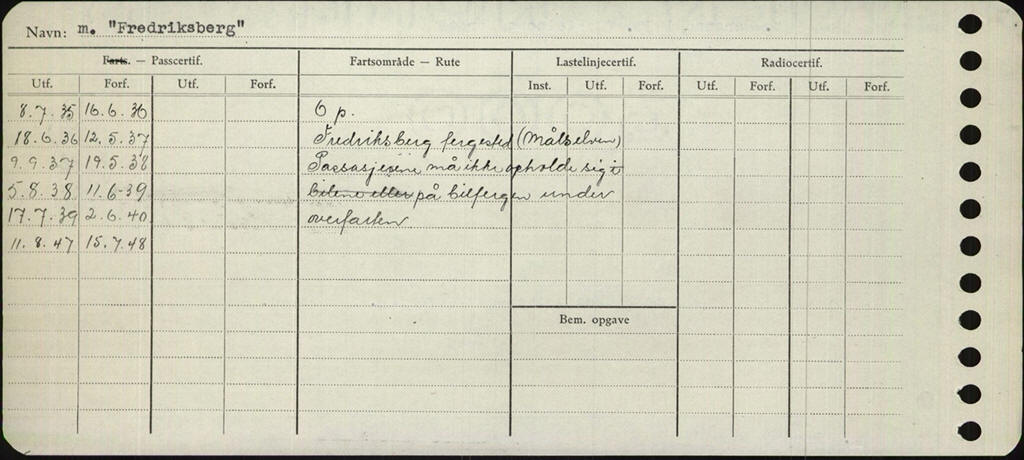 Navn: m. "Fredriksberg"
Farts. — Passcertif. Fartsområde — Rute Lastelinjecertif. Radiocertif.
Utf. Forf. Utf. Forf. Inst. Utf. Forf. Utf. Forf. Utf. Forf.
8.7.35 16.6.36 6 p.
18.6.36 12.5.37 Fredriksberg fergested (Målselven)
9.9.37 19.5.38 Passasjerene må ikke opholde sig i
5.8.38 11.6-39 bilene eller på bilfergen under
17.7.39 2.6.40 overfarten
11.8.47 15.7.48
Bem. opgave